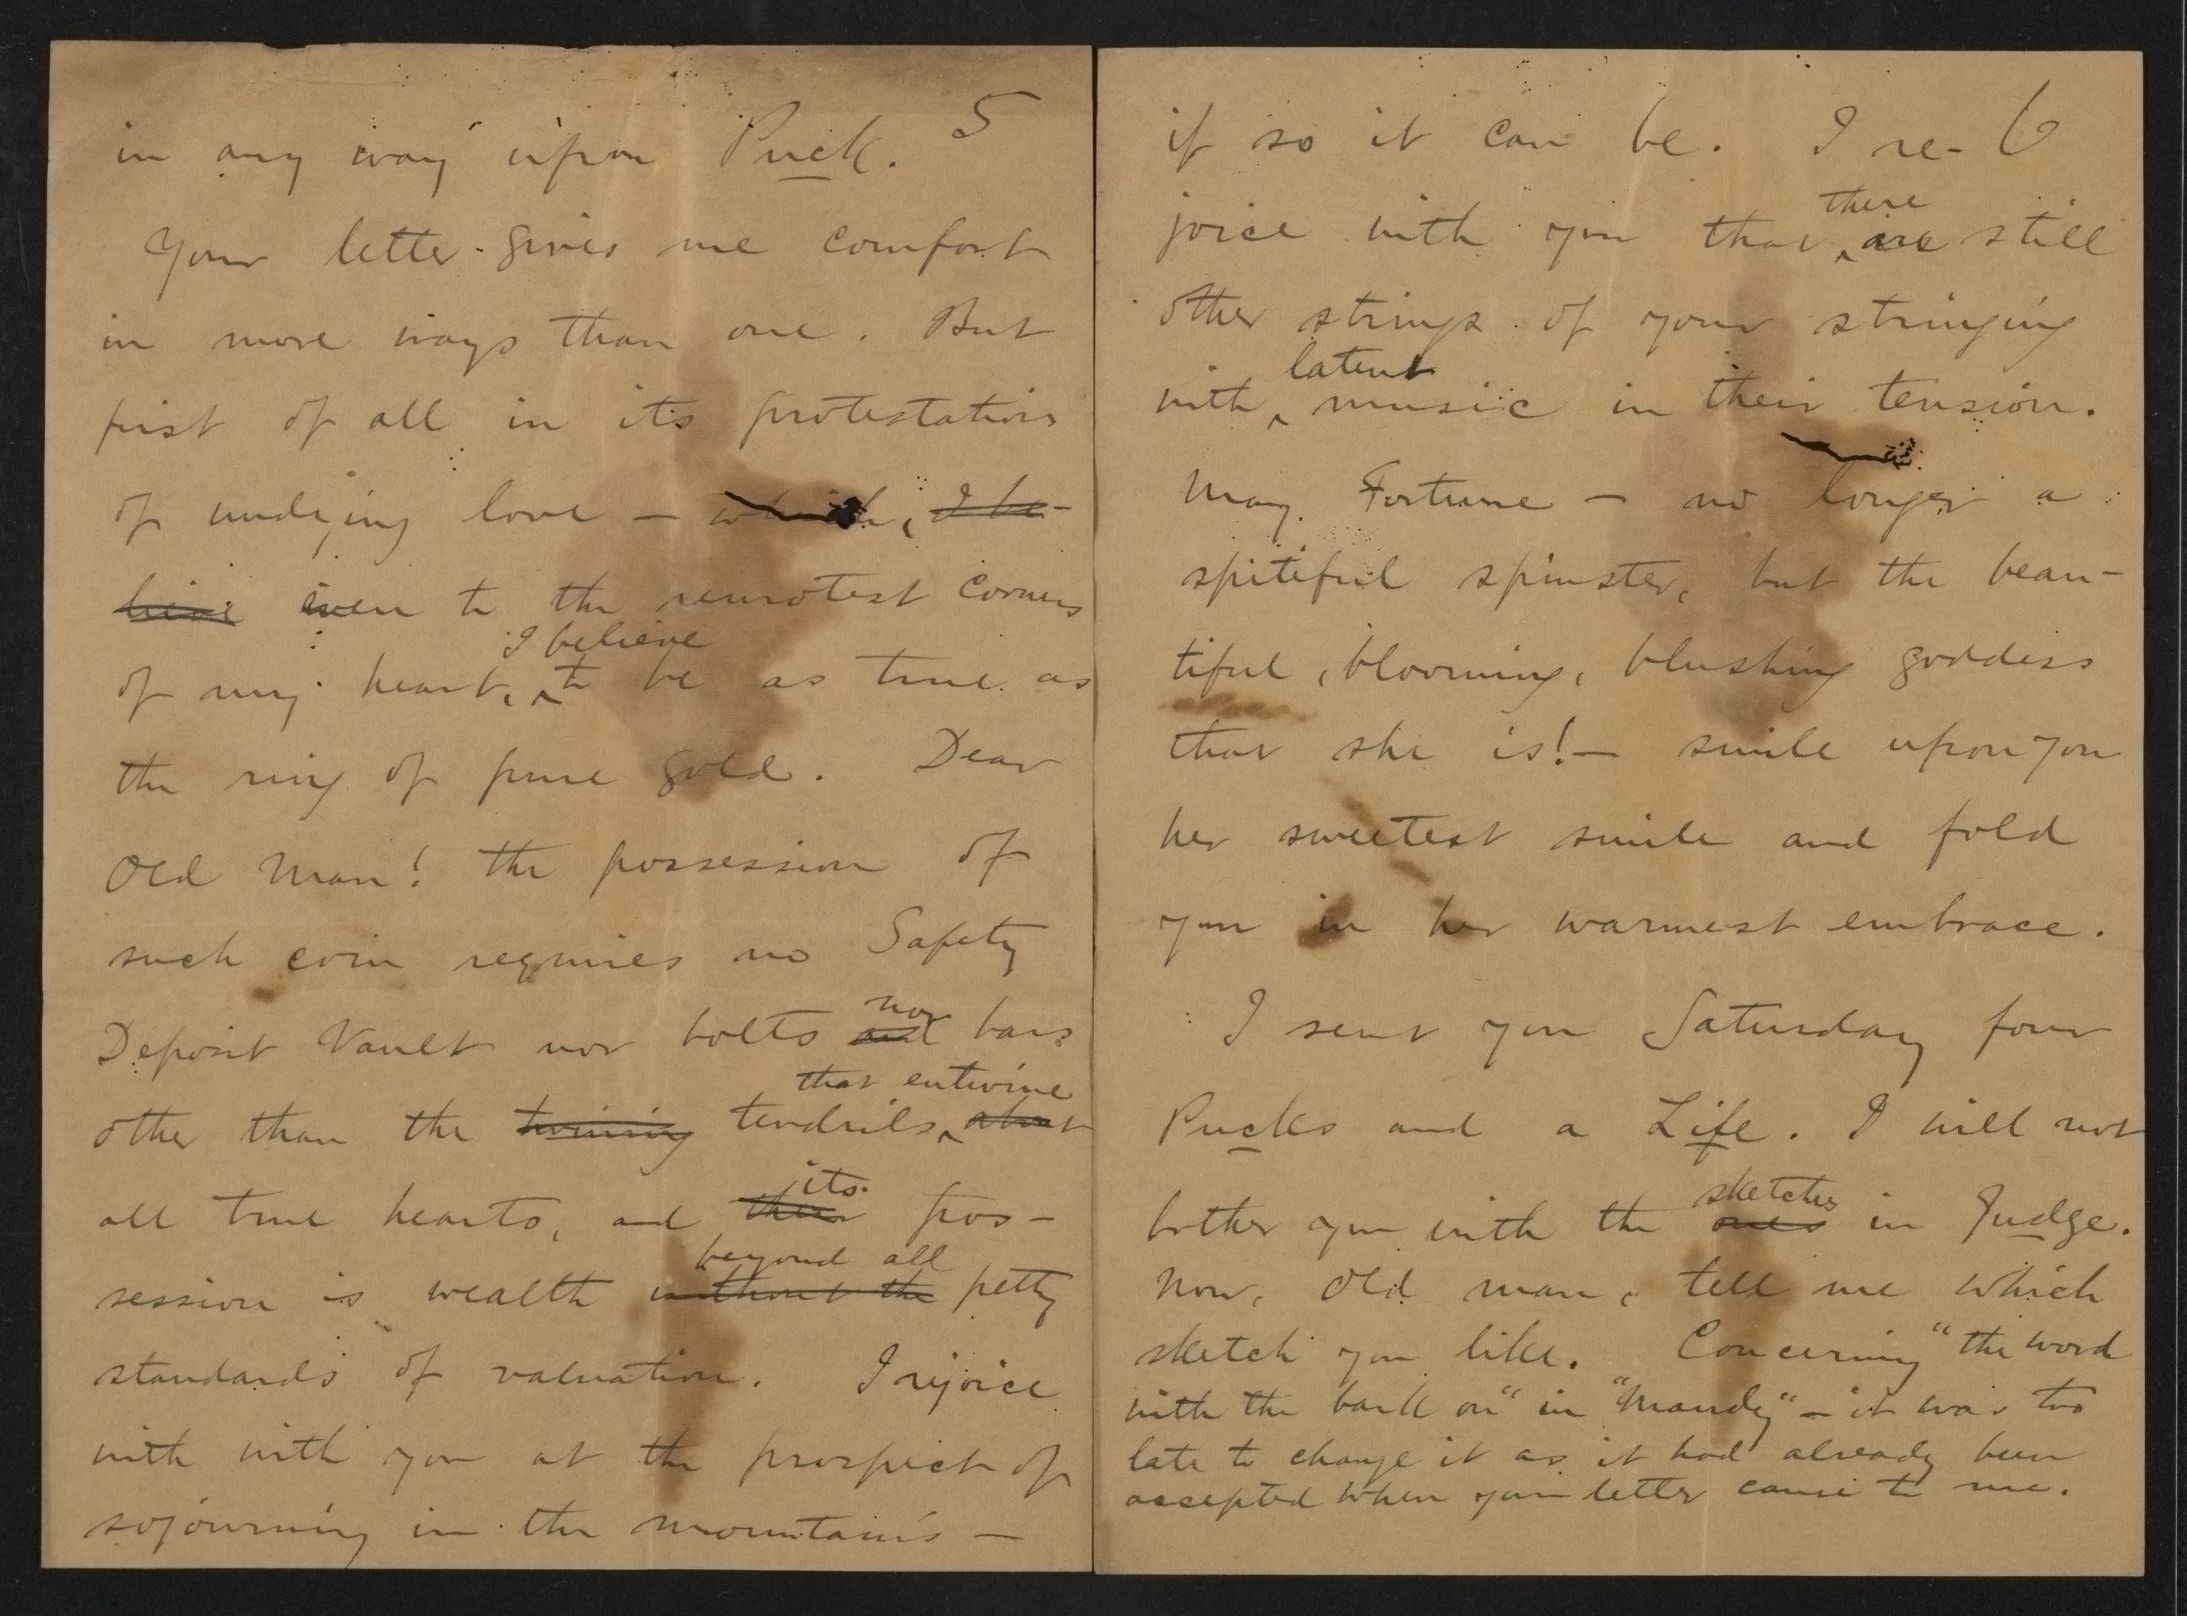 5
in any way upon Puck.
Your letter gives me comfort
in more ways than one. But
first of all in its protestations
of undying love — which, I be-
lieve even to the remotest corners
I believe
of my heart, to be as true as
the ring of pure gold. Dear
Old Man! the possession of
such coin requires no Safety
nor
Deposit Vault nor bolts and bars
that entwine
other than the twining tendrils about
its
all true hearts, and their pos-
beyond all
session is wealth without the petty
standards of valuation. I rejoice
with with you at the prospect of
sojourning in the mountains —
6
if so it can be. I re-
there
joice with you that are still
other strings of your stringing
latent
with music in their tension.
May Fortune — no longer a
spiteful spinster, but the beau-
tiful, blooming, blushing goddess
that she is! — smile upon you
her sweetest smile and fold
you in her warmest embrace.
I sent you Saturday four
Pucks and a Life. I will not
sketches
bother you with the ones in Judge.
Now, Old man, tell me which
sketch you like. Concerning "the word
with the bark on" in "Mandy" — it was too
late to change it as it had already been
accepted when your letter came to me.